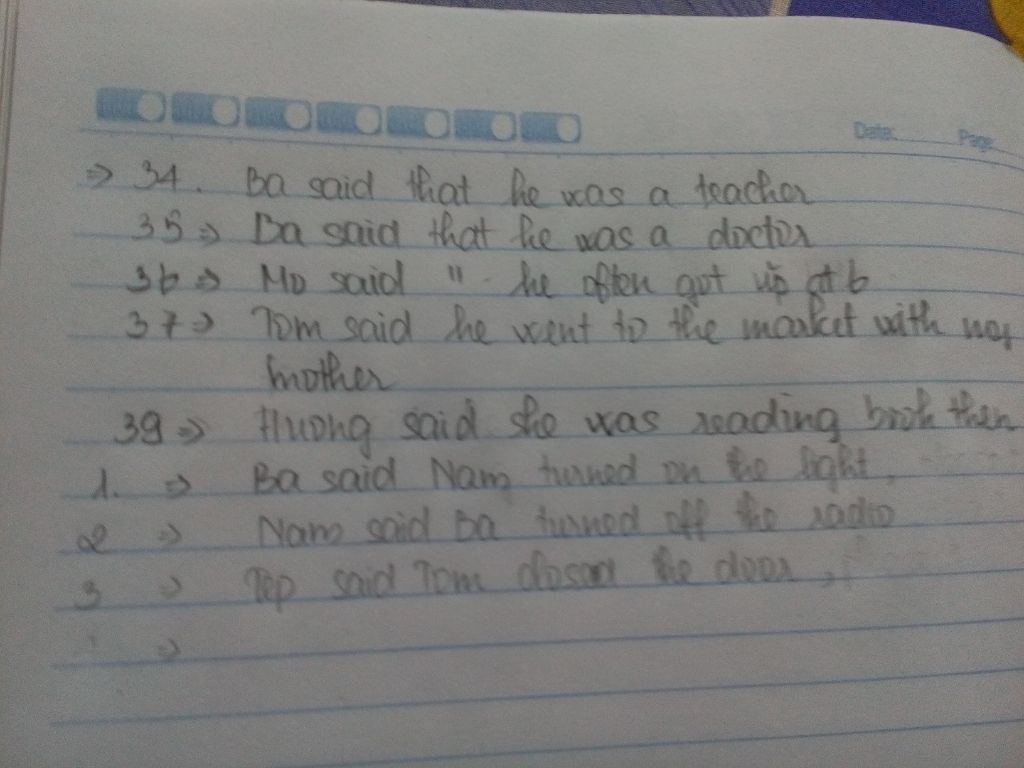 Date: Page:
=> 34. Ba said that he was a teacher
35 => Ba said that he was a doctor
36 => Mo said " he often got up at 6
37 => Tom said he went to the market with my
mother
39 => Huong said she was reading book then
1. => Ba said Nam turned on the light.
2 => Nam said Ba turned off the radio
3 => Tep said Tom closed the door,
=>